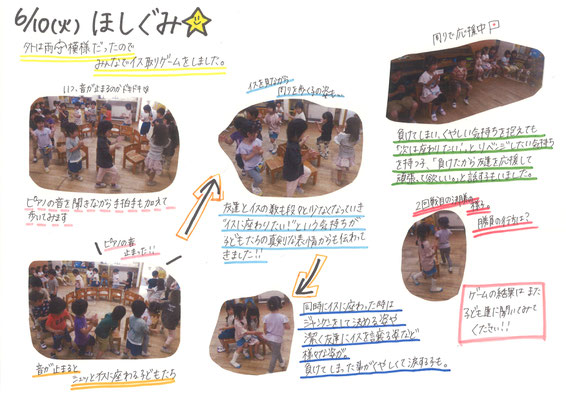 6/10(火) ほしぐみ
外は雨模様だったので
みんなでイス取りゲームをしました。
いつ、音が止まるのかドキドキ
ピアノの音を聞きながら手拍子も加えて
歩いてみます
ピアノの音
止まった!!
音が止まると
シュッとイスに座わる子どもたち
イスを見ながら
周りを歩くの姿も…
友達とイスの数も段々と少なくなっていき
"イスに座わりたい!"という気持ちが
子どもたちの真剣な表情からも伝わって
きました!!
同時にイスに座わった時は
ジャンケンをして決める姿や
潔く友達にイスを譲る姿など
様々な姿が。
負けてしまった事がくやしくて涙する子も。
周りで応援中
負けてしまい、くやしい気持ちを抱えても
"次は座わりたい"と、リベンジしたい気持ち
を持つ子、「負けたから友達を応援して
頑張って欲しい。」と話す子もいました。
2回戦目の決勝の様子。
勝負の行方は?
ゲームの結果は、また
子ども達に聞いてみて
ください!!